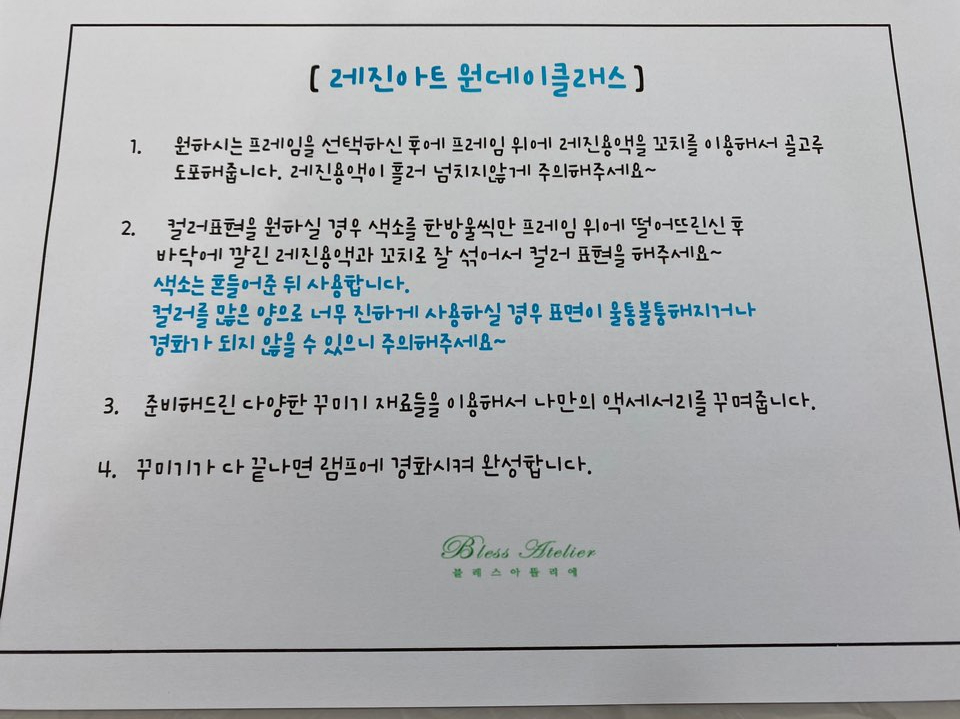 [ 레진아트 원데이클래스 ]
1. 원하시는 프레임을 선택하신 후에 프레임 위에 레진용액을 꼬치를 이용해서 골고루
도포해줍니다. 레진용액이 흘러 넘치지않게 주의해주세요~
2. 컬러표현을 원하실 경우 색소를 한방울씩만 프레임 위에 떨어뜨린신 후
바닥에 깔린 레진용액과 꼬치로 잘 섞어서 컬러 표현을 해주세요~
색소는 흔들어준 뒤 사용합니다.
컬러를 많은 양으로 너무 진하게 사용하실 경우 표면이 울퉁불퉁해지거나
경화가 되지 않을 수 있으니 주의해주세요~
3. 준비해드린 다양한 꾸미기 재료들을 이용해서 나만의 액세서리를 꾸며줍니다.
4. 꾸미기가 다 끝나면 램프에 경화시켜 완성합니다.
Bless Atelier
블레스아뜰리에